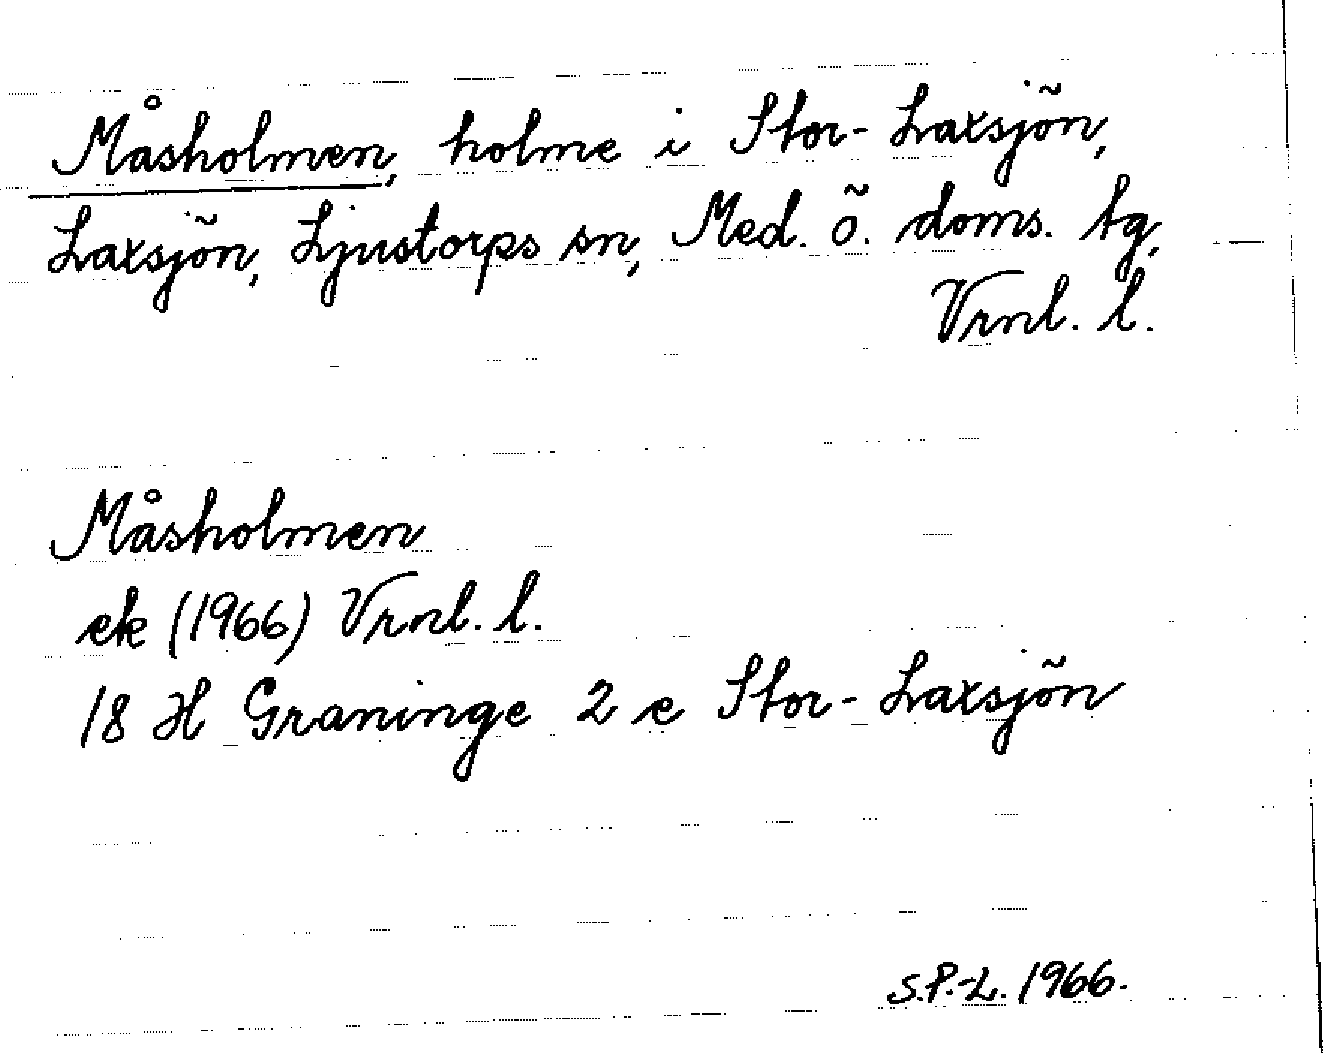 Måsholmen, holme i Stor-Laxsjön,
Laxsjön, Ljustorps sn, Med. ö. doms. tg,
Vrnl. l.
Måsholmen
ek (1966) Vrnl. l.
18 H Graninge 2 e Stor-Laxsjön
S.P.-L. 1966.